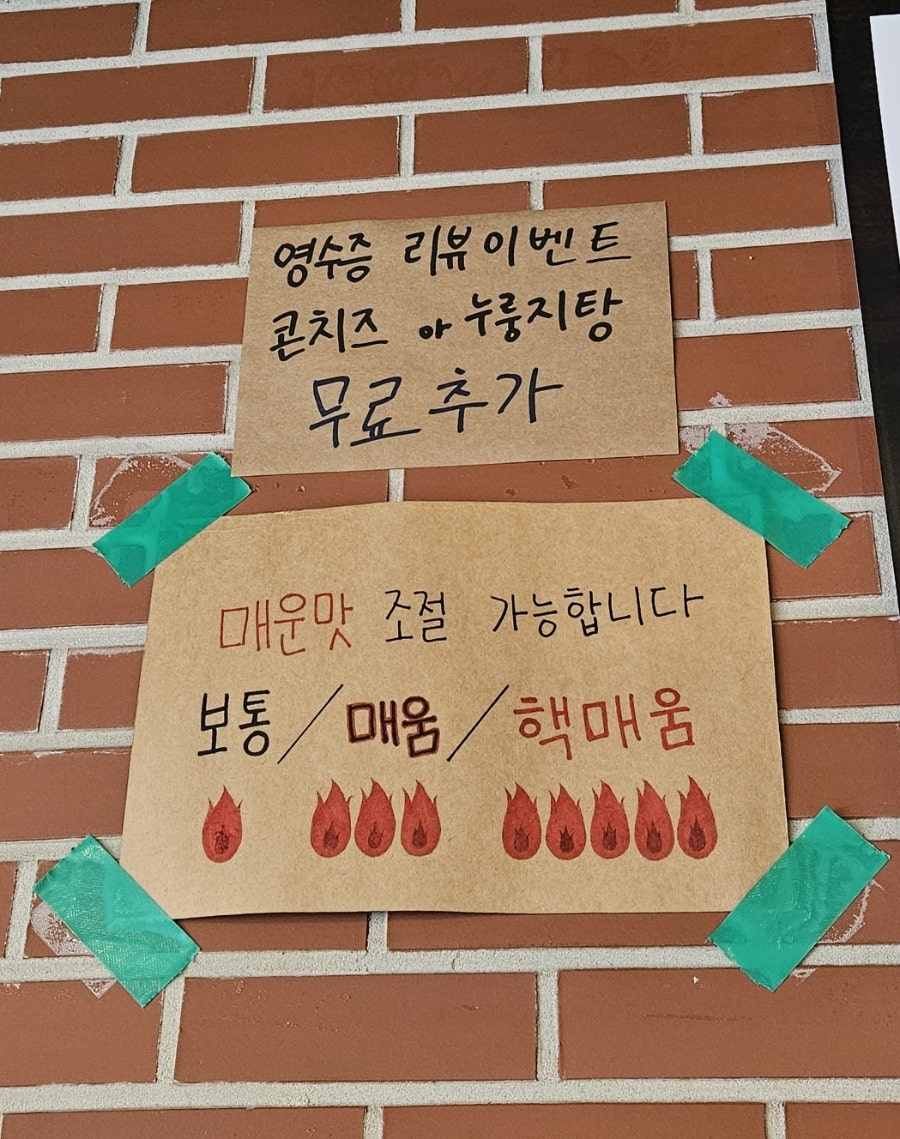 영수증 리뷰이벤트
콘치즈 or 누룽지탕
무료추가
매운맛 조절 가능합니다
보통/매움/핵매움